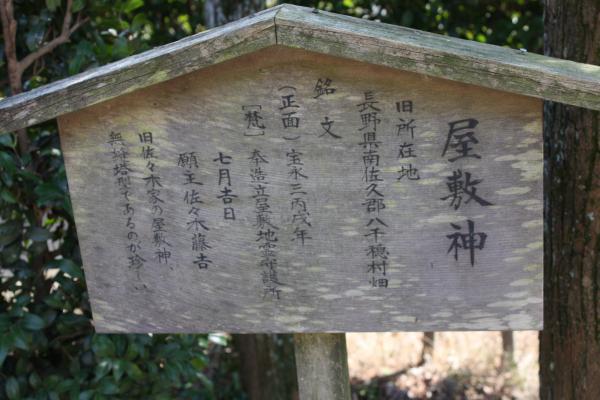 屋敷神
旧所在地
長野県南佐久郡八千穂村畑
銘文
(正面) 宝永三丙戌年
[梵] 奉造立屋敷地霊守護所
七月吉日
願主佐々木藤吉
旧佐々木家の屋敷神、
無縫塔型であるのが珍しい